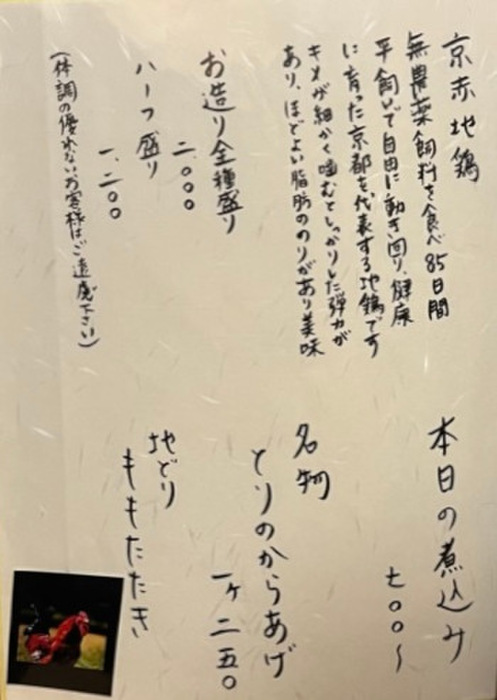 京赤地鶏
無農薬飼料を食べ85日間
平飼いで自由に動き回り、健康
に育った京都を代表する地鶏です
キメが細かく噛むとしっかりした弾力が
あり、ほどよい脂肪ののりがあり美味
お造り全種盛り
二.〇〇〇
ハーフ盛り
一.二〇〇
(体調の優れないお客様はご遠慮下さい)
本日の煮込み
七〇〇~
名物
とりのからあげ
一ヶ二五〇
地どり
ももたたき